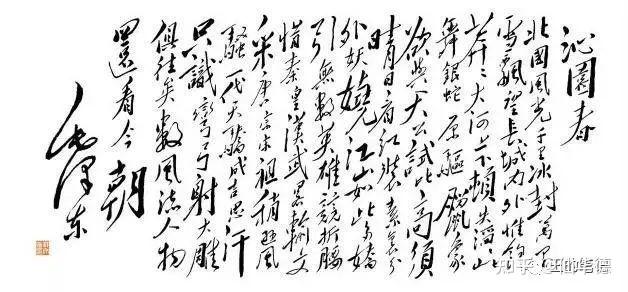 沁園春
北國風光千里冰封萬里
雪飄望長城内外惟餘
莽々大河上下頓失滔々山
舞銀蛇原驅臘象
欲與天公試比高須
晴日看红裝素裹分
外妖嬈江山如此多嬌
引無數英雄競折腰
惜秦皇漢武略輸文
采唐宗宋祖稍遜風
騷一代天驕成吉思汗
只識彎弓射大雕
俱往矣數風流人物
還看今朝
毛澤东
知乎